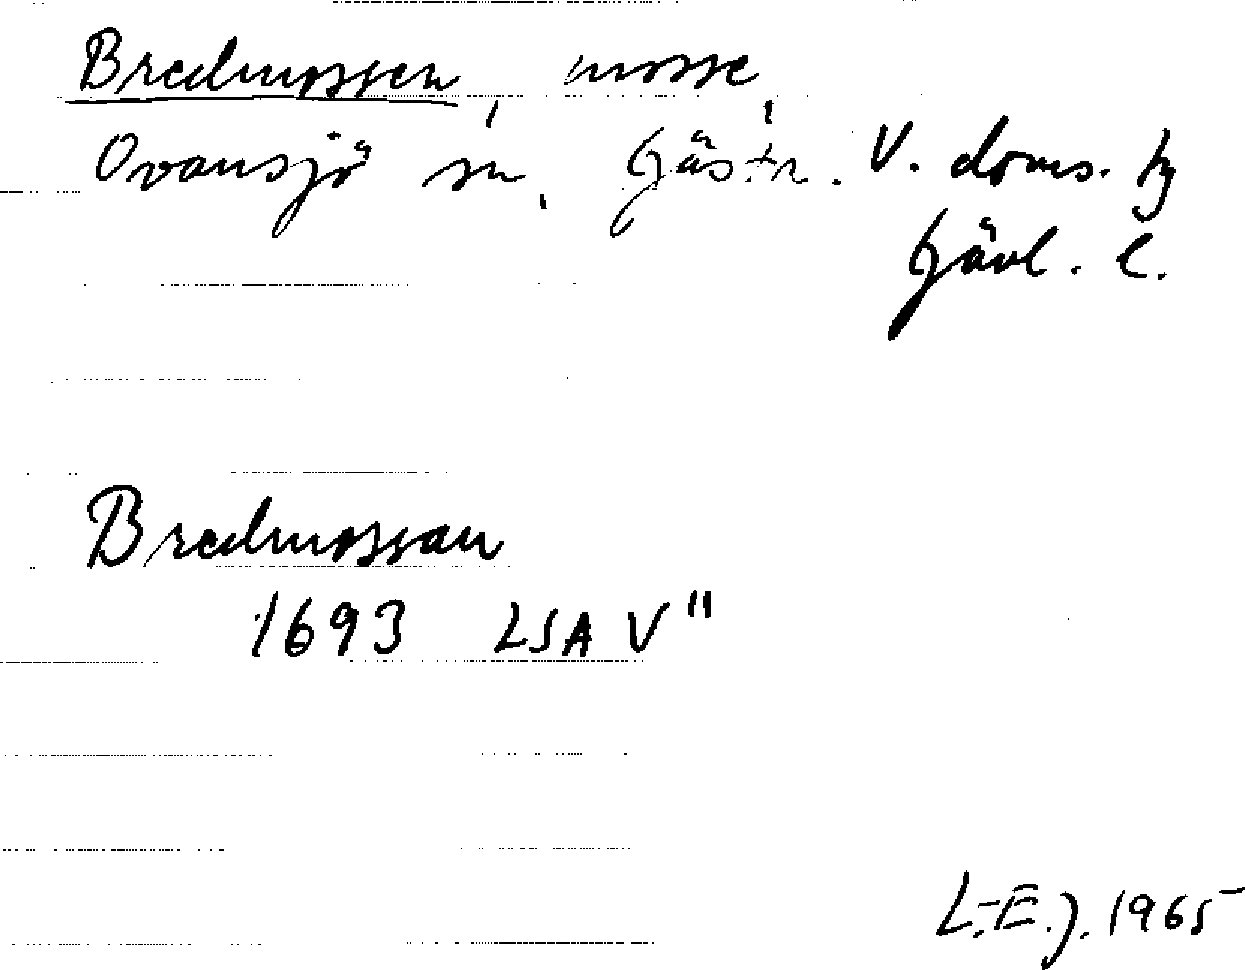 Bredmossen, mosse,
Ovansjö sn, Gästr. V. doms. tg
Gävl. l.
Bredmossan
1693 LSA V"
L-E.J. 1965